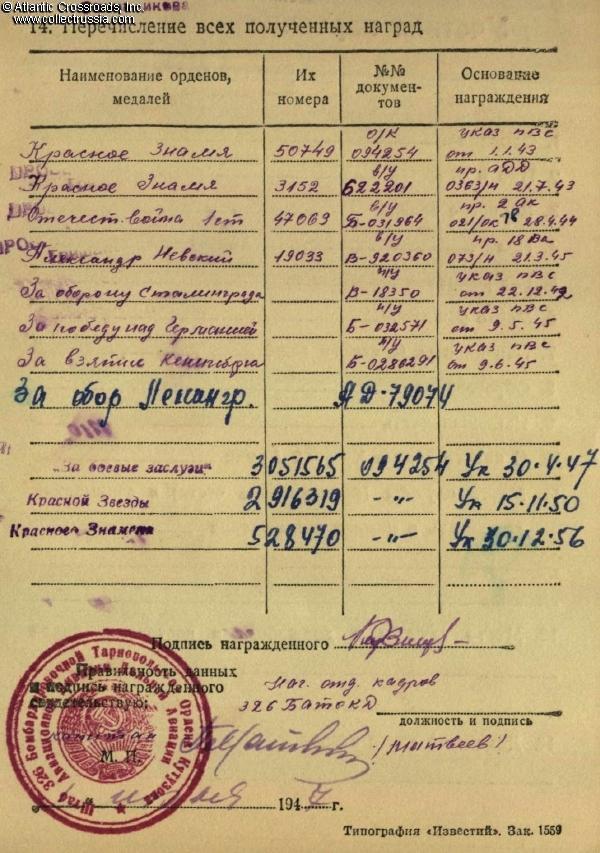 © Atlantic Crossroads, Inc.
www.collectrussia.com
14. Перечисление всех полученных наград
Наименование орденов, медалей
Их номера
№№ документов
Основание награждения
о/к указ ПВС
Красное Знамя 50749 094254 от 1.1.43
в/у пр. АДД
Красное Знамя 3152 Б22201 0363/н 21.7.43
в/у пр. 2 ак
Отечест. война 1 ст 47069 Б-031964 021/ок 28.4.44
в/у пр. 18 Ва
Александр Невский 19033 В-920360 073/н 21.3.45
п/у указ ПВС
За оборону Сталинграда В-18350 от 22.12.42
п/у указ ПВС
За победу над Германией Б-032571 от 9.5.45
п/у указ ПВС
За взятие Кенигсберга Б-0286291 от 9.6.45
За обор Ленингр. АД-79074
„За боевые заслуги“ 3051565 094254 Ук 30.4.47
Красной Звезды 2916319 -"- Ук 15.11.50
Красного Знамени 528470 -"- Ук 30.12.56
Подпись награжденного
Правильность данных
и подпись награжденного
свидетельствую:
Нач. отд. кадров
326 БаТОКД
должность и подпись
капитан
(Матвеев)
М. П.
июля 1947 г.
Штаб 326 Бомбардировочной Тарнопольской Ордена Кутузова Авиационной Дивизии Дальней Авиации
Типография «Известий». Зак. 1559